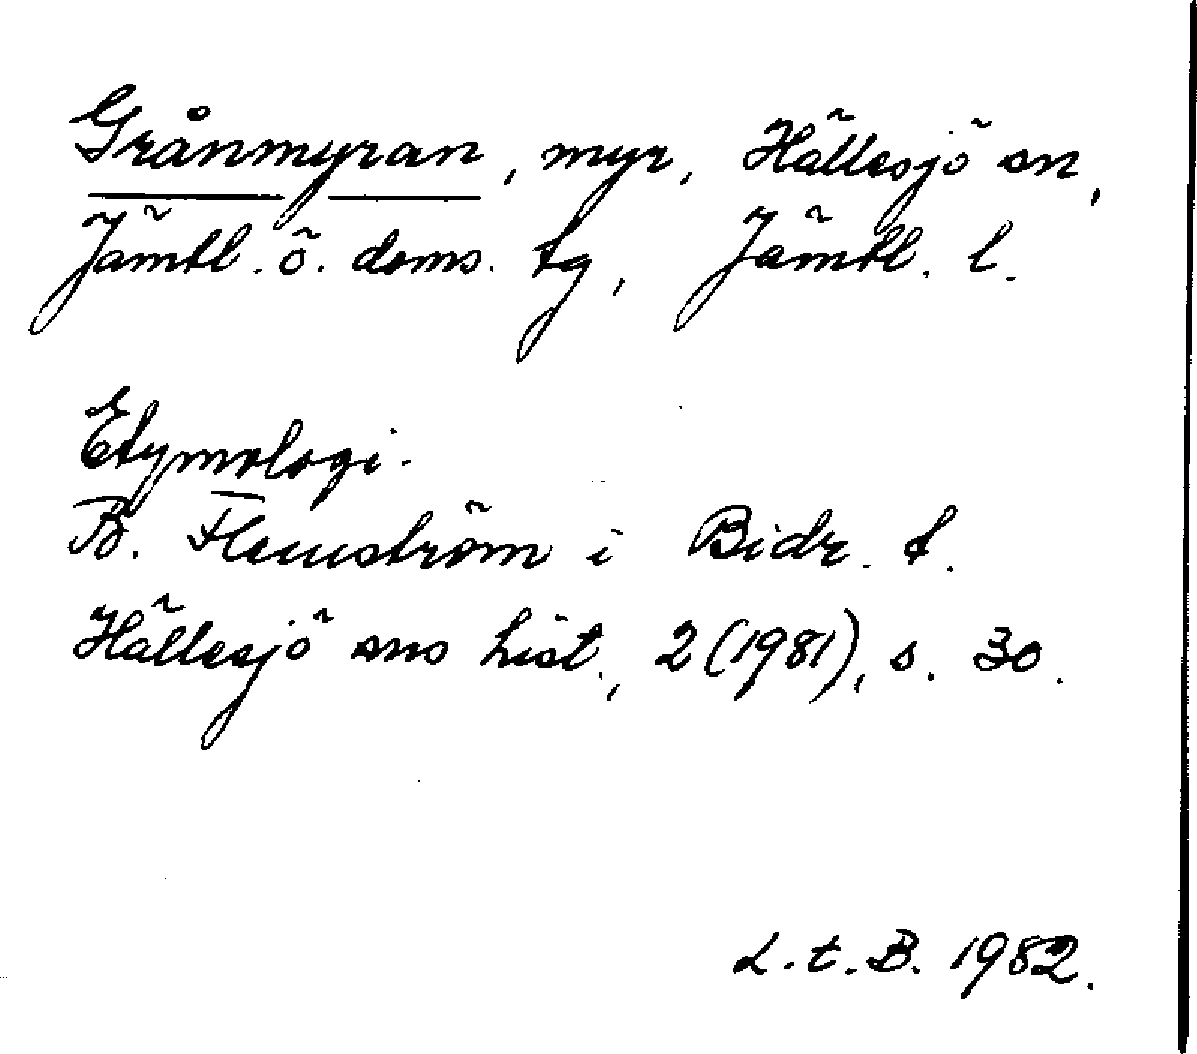 Grånmyran, myr, Hällesjö sn,
Jämtl. ö. doms. tg, Jämtl. l.
Etymologi.
B. Flemström i Bidr. t.
Hällesjö sns hist., 2 (1981), s. 30.
L. t. B. 1982.